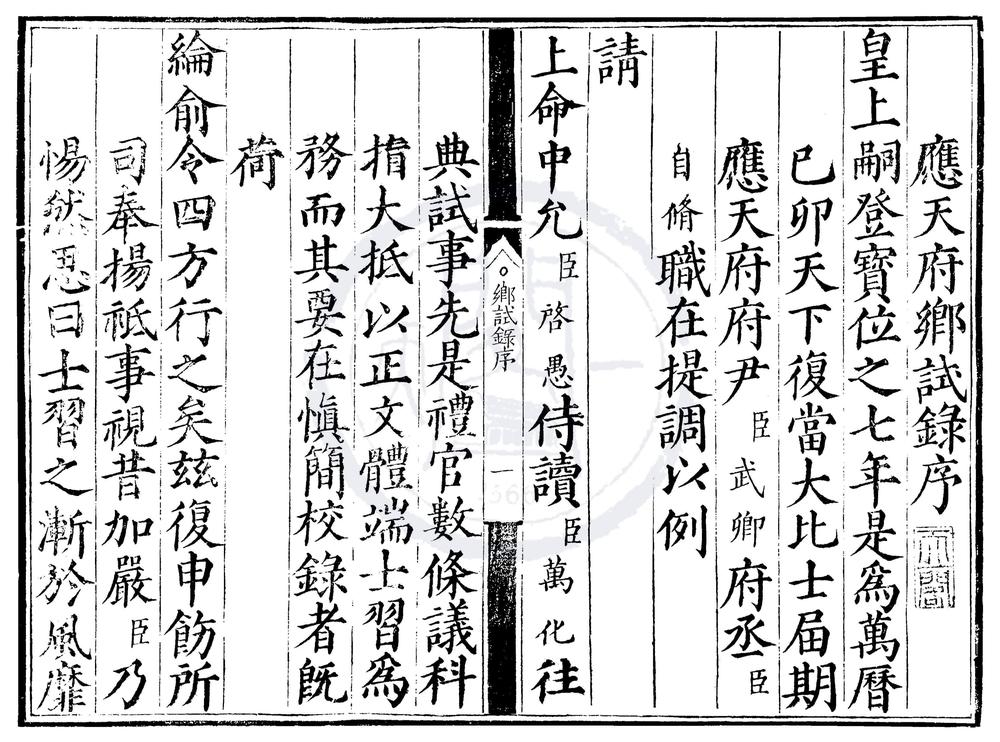 應天府鄉試錄序
皇上嗣登寶位之七年是爲萬曆
己卯天下復當大比士屆期
應天府府尹臣武卿府丞臣
自脩職在提調以例
請
上命中允臣啓愚侍讀臣萬化往
鄉試錄序
一
典試事先是禮官數條議科
揩大抵以正文體端士習爲
務而其要在慎簡校錄者既
荷
綸俞令四方行之矣兹復申飭所
司奉揚祗事視昔加嚴臣乃
惕然思曰士習之漸於風靡